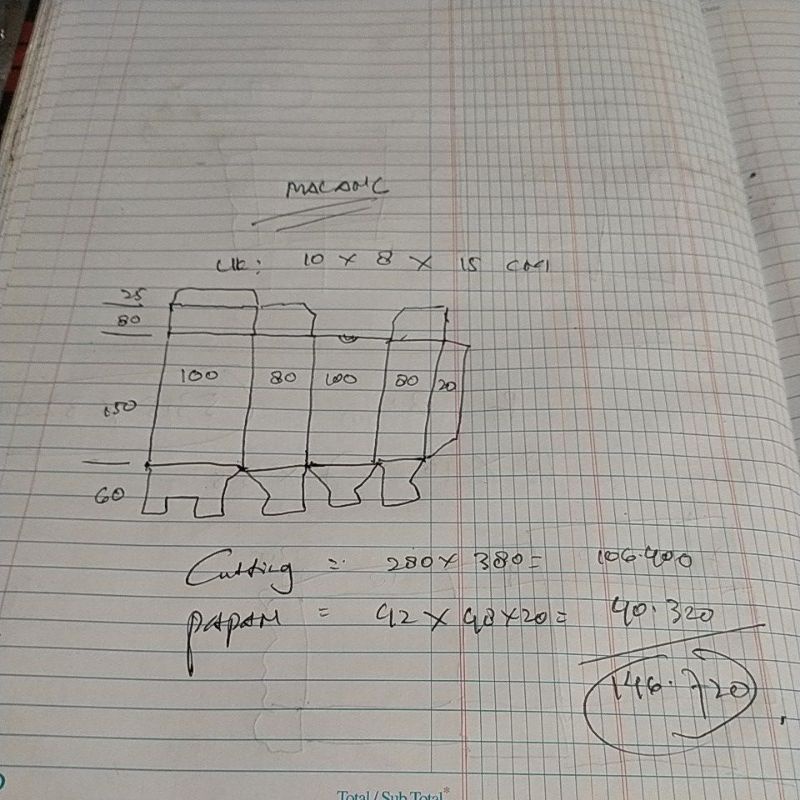 MACAMC
UK: 10 x 8 x 15 cm
25
80
150
100 80 100 80 20
60
Cutting = 280 x 380 = 106.400
PAPAN = 42 x 48 x 20 = 40.320
146.720
Total / Sub Total*